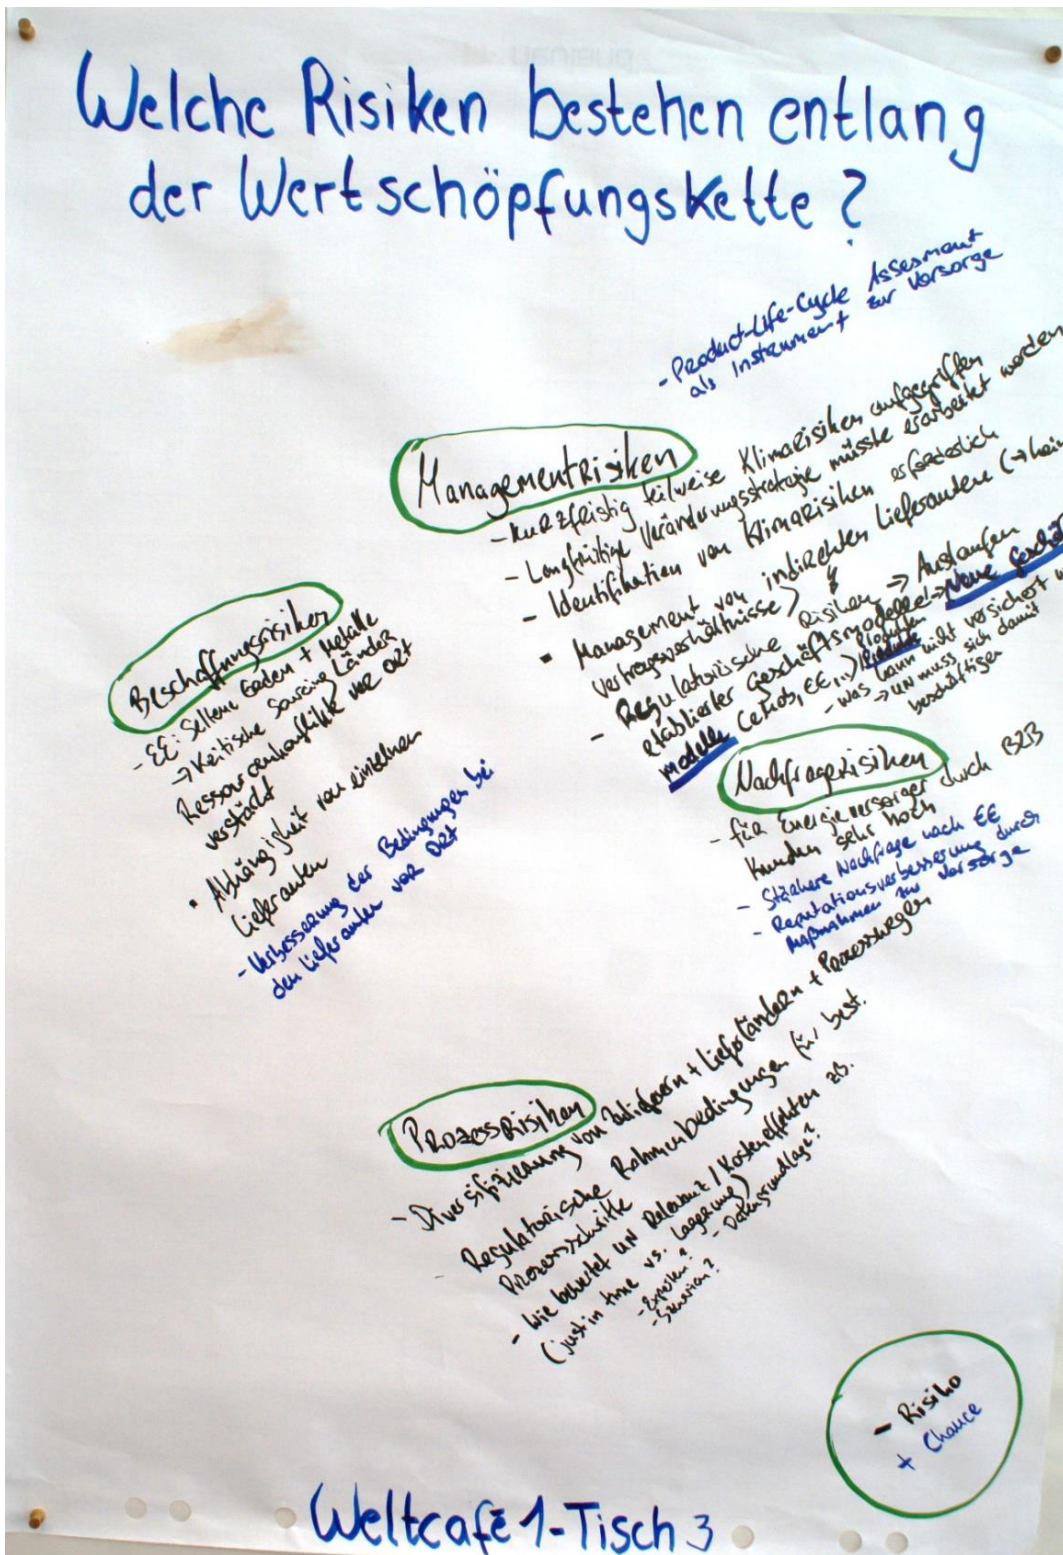 Welche Risiken bestehen entlang
der Wertschöpfungskette?
- Product-Life-Cycle Assesment
als Instrument zur Vorsorge
Managementrisiken
- Kurzfristig teilweise Klimarisiken aufgegriffen
- Langfristige Veränderungsstrategie müsste erarbeitet werden
- Identifikation von Klimarisiken erforderlich
- Management von indirekten Lieferanten (→ kein
Vertragsverhältnisse)
- Regulatorische Risiken → Auslaufen
etablierter Geschäftsmodelle! → Neue Geschä
modelle (EE..) / Produkte
- was kann nicht versichert w
→ UN muss sich damit
beschäftigen
Beschaffungsrisiken
- EE: Seltene Erden + Metalle
→ Kritische Sourcing Länder
Ressourcenkonflikte vor Ort
verstärkt
- Abhängigkeit von einzelnen
Lieferanten
- Verbesserung der Bedingungen bei
den Lieferanten vor Ort
Nachfragerisiken
- für Energieversorger durch B2B
Kunden sehr hoch
- Stärkere Nachfrage nach EE
- Reputationsverbesserung durch
Maßnahmen zur Vorsorge
Prozessrisiken
- Diversifizierung von Zulieferern + Lieferländern + Prozesswegen
- Regulatorische Rahmenbedingungen für best.
Prozessschritte
- Wie bewertet UN Relevanz / Kosteneffekten zB.
(just in time vs. Lagerung)
- Experten? - Datengrundlage?
- Szenarien?
- Risiko
+ Chance
Weltcafé 1-Tisch 3